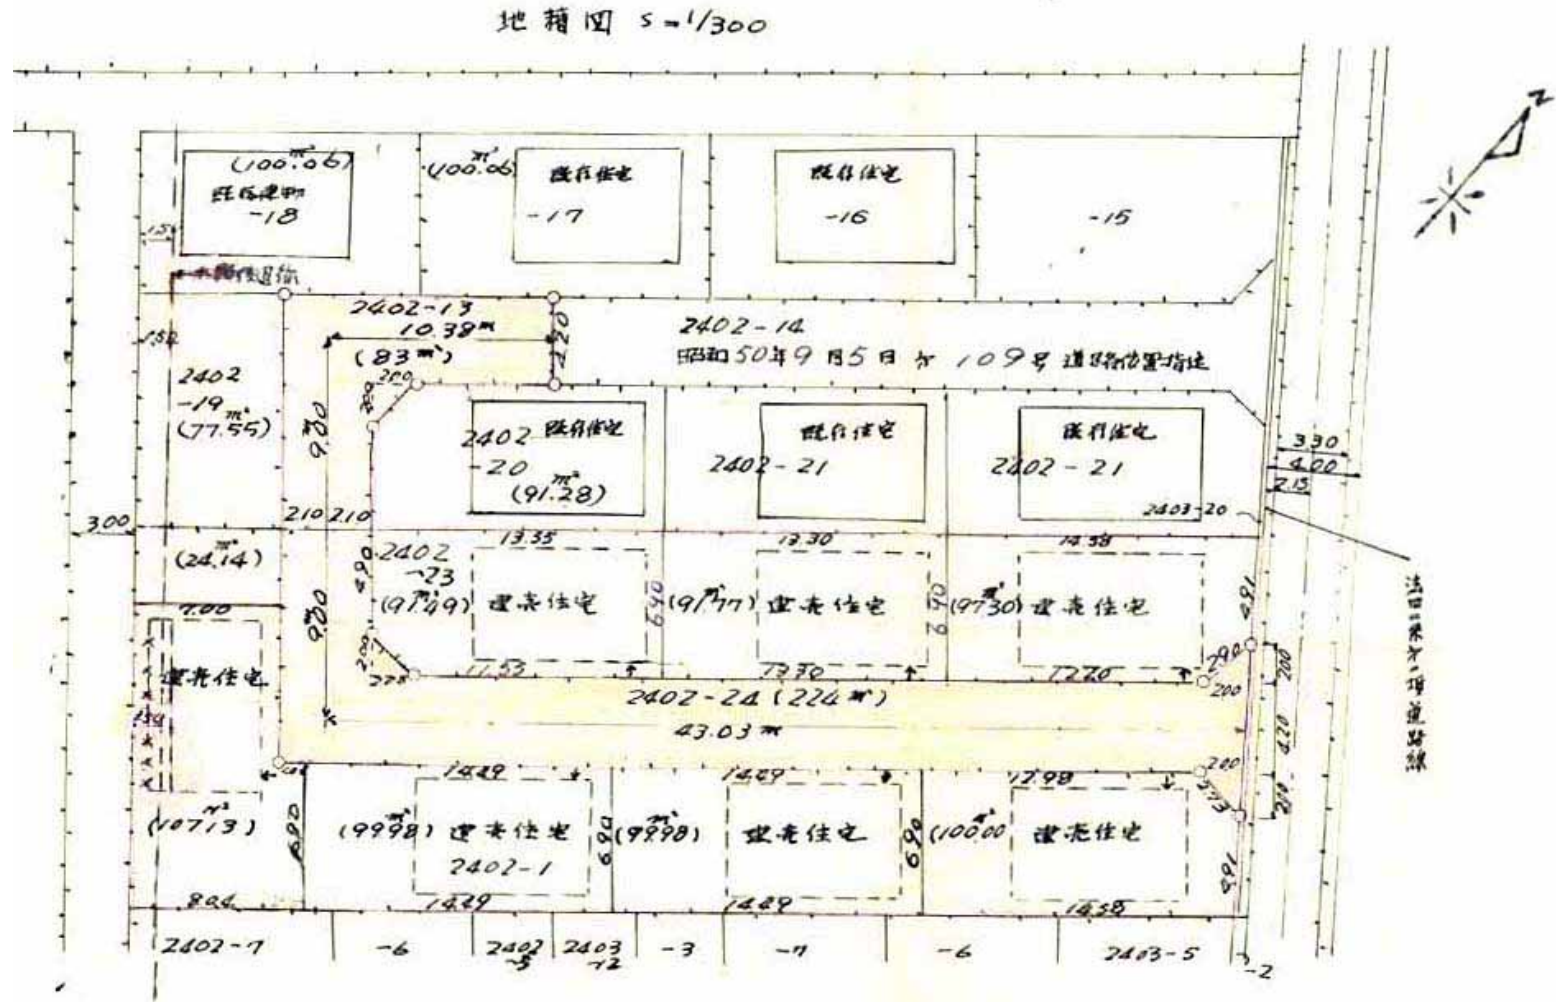 地籍図 S=1/300
(100.06㎡)
-18
(100.06㎡)
既存住宅
-17
既存住宅
-16
-15
2402-13
10.38m
(83㎡)
4.20
2402-14
昭和50年9月5日 第109号 道路位置指定
2402
-19
(77.55㎡)
9.00
200
200
2402
-20
既存住宅
(91.28㎡)
既存住宅
2402-21
既存住宅
2402-21
3.30
4.00
2.15
2403-20
3.00
2.10 2.10
(24.14㎡)
7.00
2402
-23
(91.49㎡)
建売住宅
13.35
6.90
13.30
(91.77㎡)
建売住宅
6.90
14.58
(97.30㎡)
建売住宅
4.90
4.91
9.00
200
11.53
13.30
12.20
2.90
200
200
建売住宅
2402-24 (224㎡)
43.03m
4.20
14.49
14.49
12.98
200
(107.13㎡)
6.90
(99.98㎡)
建売住宅
2402-1
6.90
(99.98㎡)
建売住宅
6.90
(100.00㎡)
建売住宅
4.91
8.04
14.49
14.49
14.58
2402-7
-6
2402
-5
2403
-12
-3
-7
-6
2403-5
-2